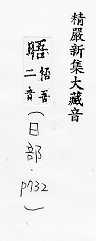 精嚴新集大藏音
晤 吾悟二音(日部.P732.)